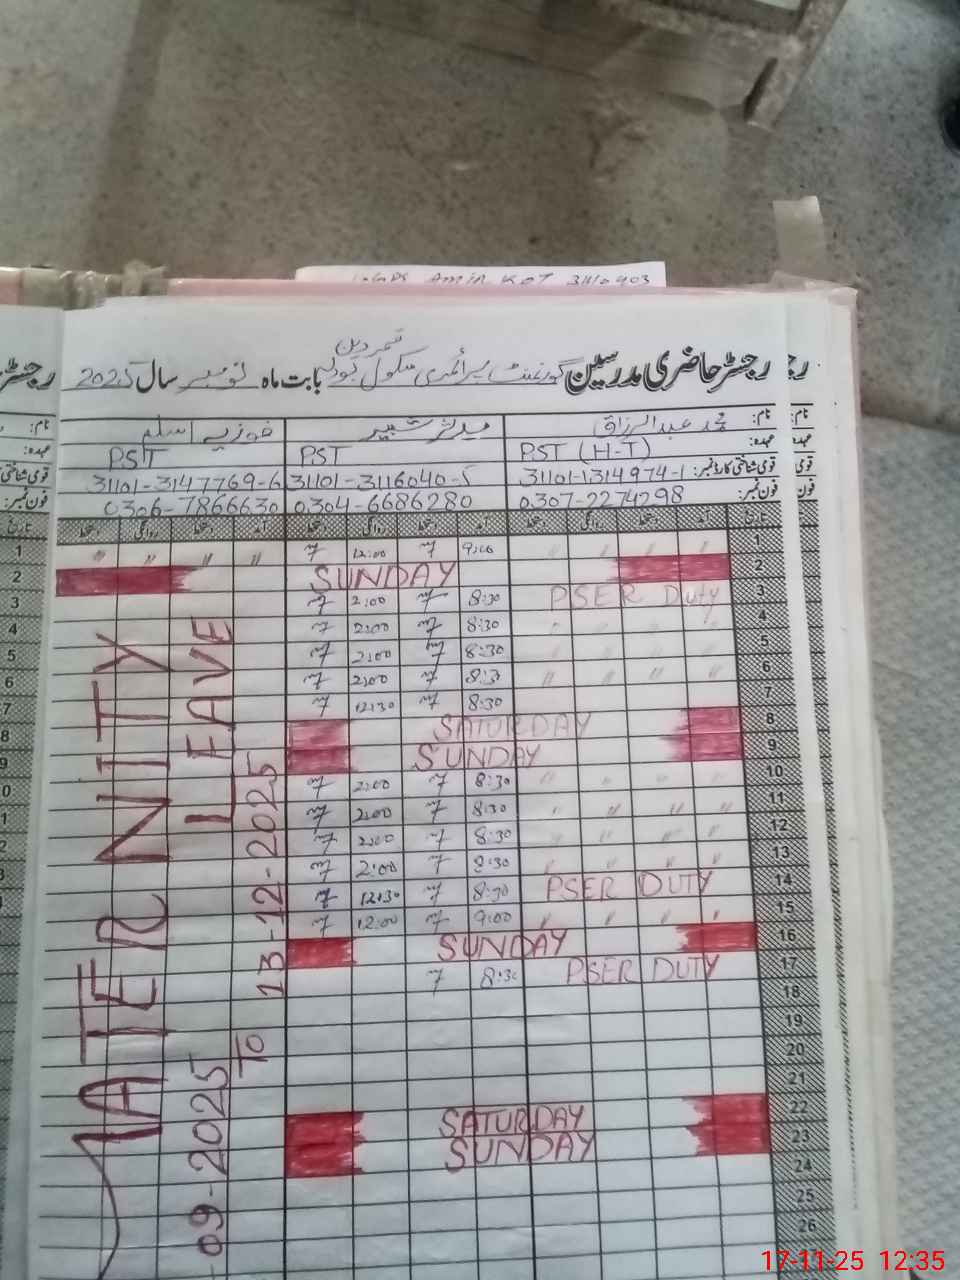 AMIR KOT 3110903
رجسٹر حاضری مدرسین گورنمنٹ پرائمری سکول بابت ماہ نومبر سال 2025
نام: محمد عبدالرزاق مدثر شبیر فوزیہ اسلم
عہدہ: PST (H-T) PST PST
قومی شناختی کارڈ نمبر: 31101-1314974-1 31101-3116040-5 31101-3147769-6
فون نمبر: 0307-2274298 0304-6686280 0306-7866630
تاریخ آمد دستخط روانگی دستخط آمد دستخط روانگی دستخط آمد دستخط روانگی دستخط
1 〃 〃 〃 〃 9:00 12:00 〃 〃 〃 〃
2 SUNDAY
3 PSER Duty 8:30 2:00
4 〃 〃 〃 〃 8:30 2:00
5 8:30 2:00
6 〃 〃 〃 〃 8:30 2:00
7 8:30 12:30
8 SATURDAY
9 SUNDAY
10 〃 〃 〃 〃 8:30 2:00
11 〃 〃 〃 〃 8:30 2:00
12 〃 〃 〃 〃 8:30 2:00
13 〃 〃 〃 〃 8:30 2:00
14 PSER DUTY 8:30 12:30
15 〃 〃 〃 〃 9:00 12:00
16 SUNDAY
17 PSER DUTY 8:30
18
19
20
21
22 SATURDAY
23 SUNDAY
24
25
26
MATERNITY
LEAVE
09-2025 TO 13-12-2025
17-11-25 12:35